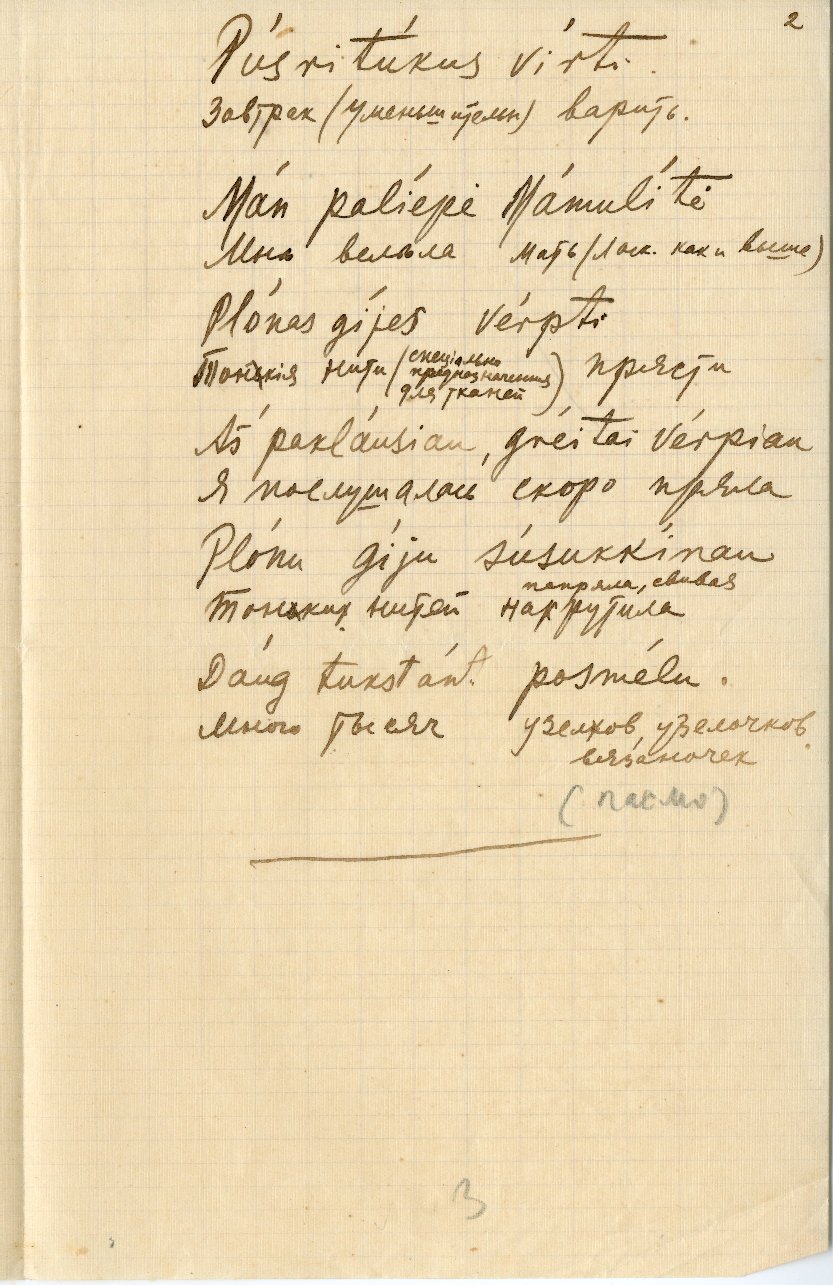 2
Púsritúkus vírti.
Завтрак (уменьшительн) варить.
Mán paliépė Mámulítė
Мнѣ велѣла мать (ласк. как и выше)
Plónas gíjes vérpti
Тонькія нити (спеціально предназначенныя для тканей) прясти
Aš pakláusiau, gréitai vérpiau
Я послушалась скоро пряла
Plónu gíju súsukkínau
напряла, свивая
Тоньких нитей накрутила
Dáug tukstánt. posmélu.
Много тысяч узелков, узелочков,
вязаночек
(пасмо)
3